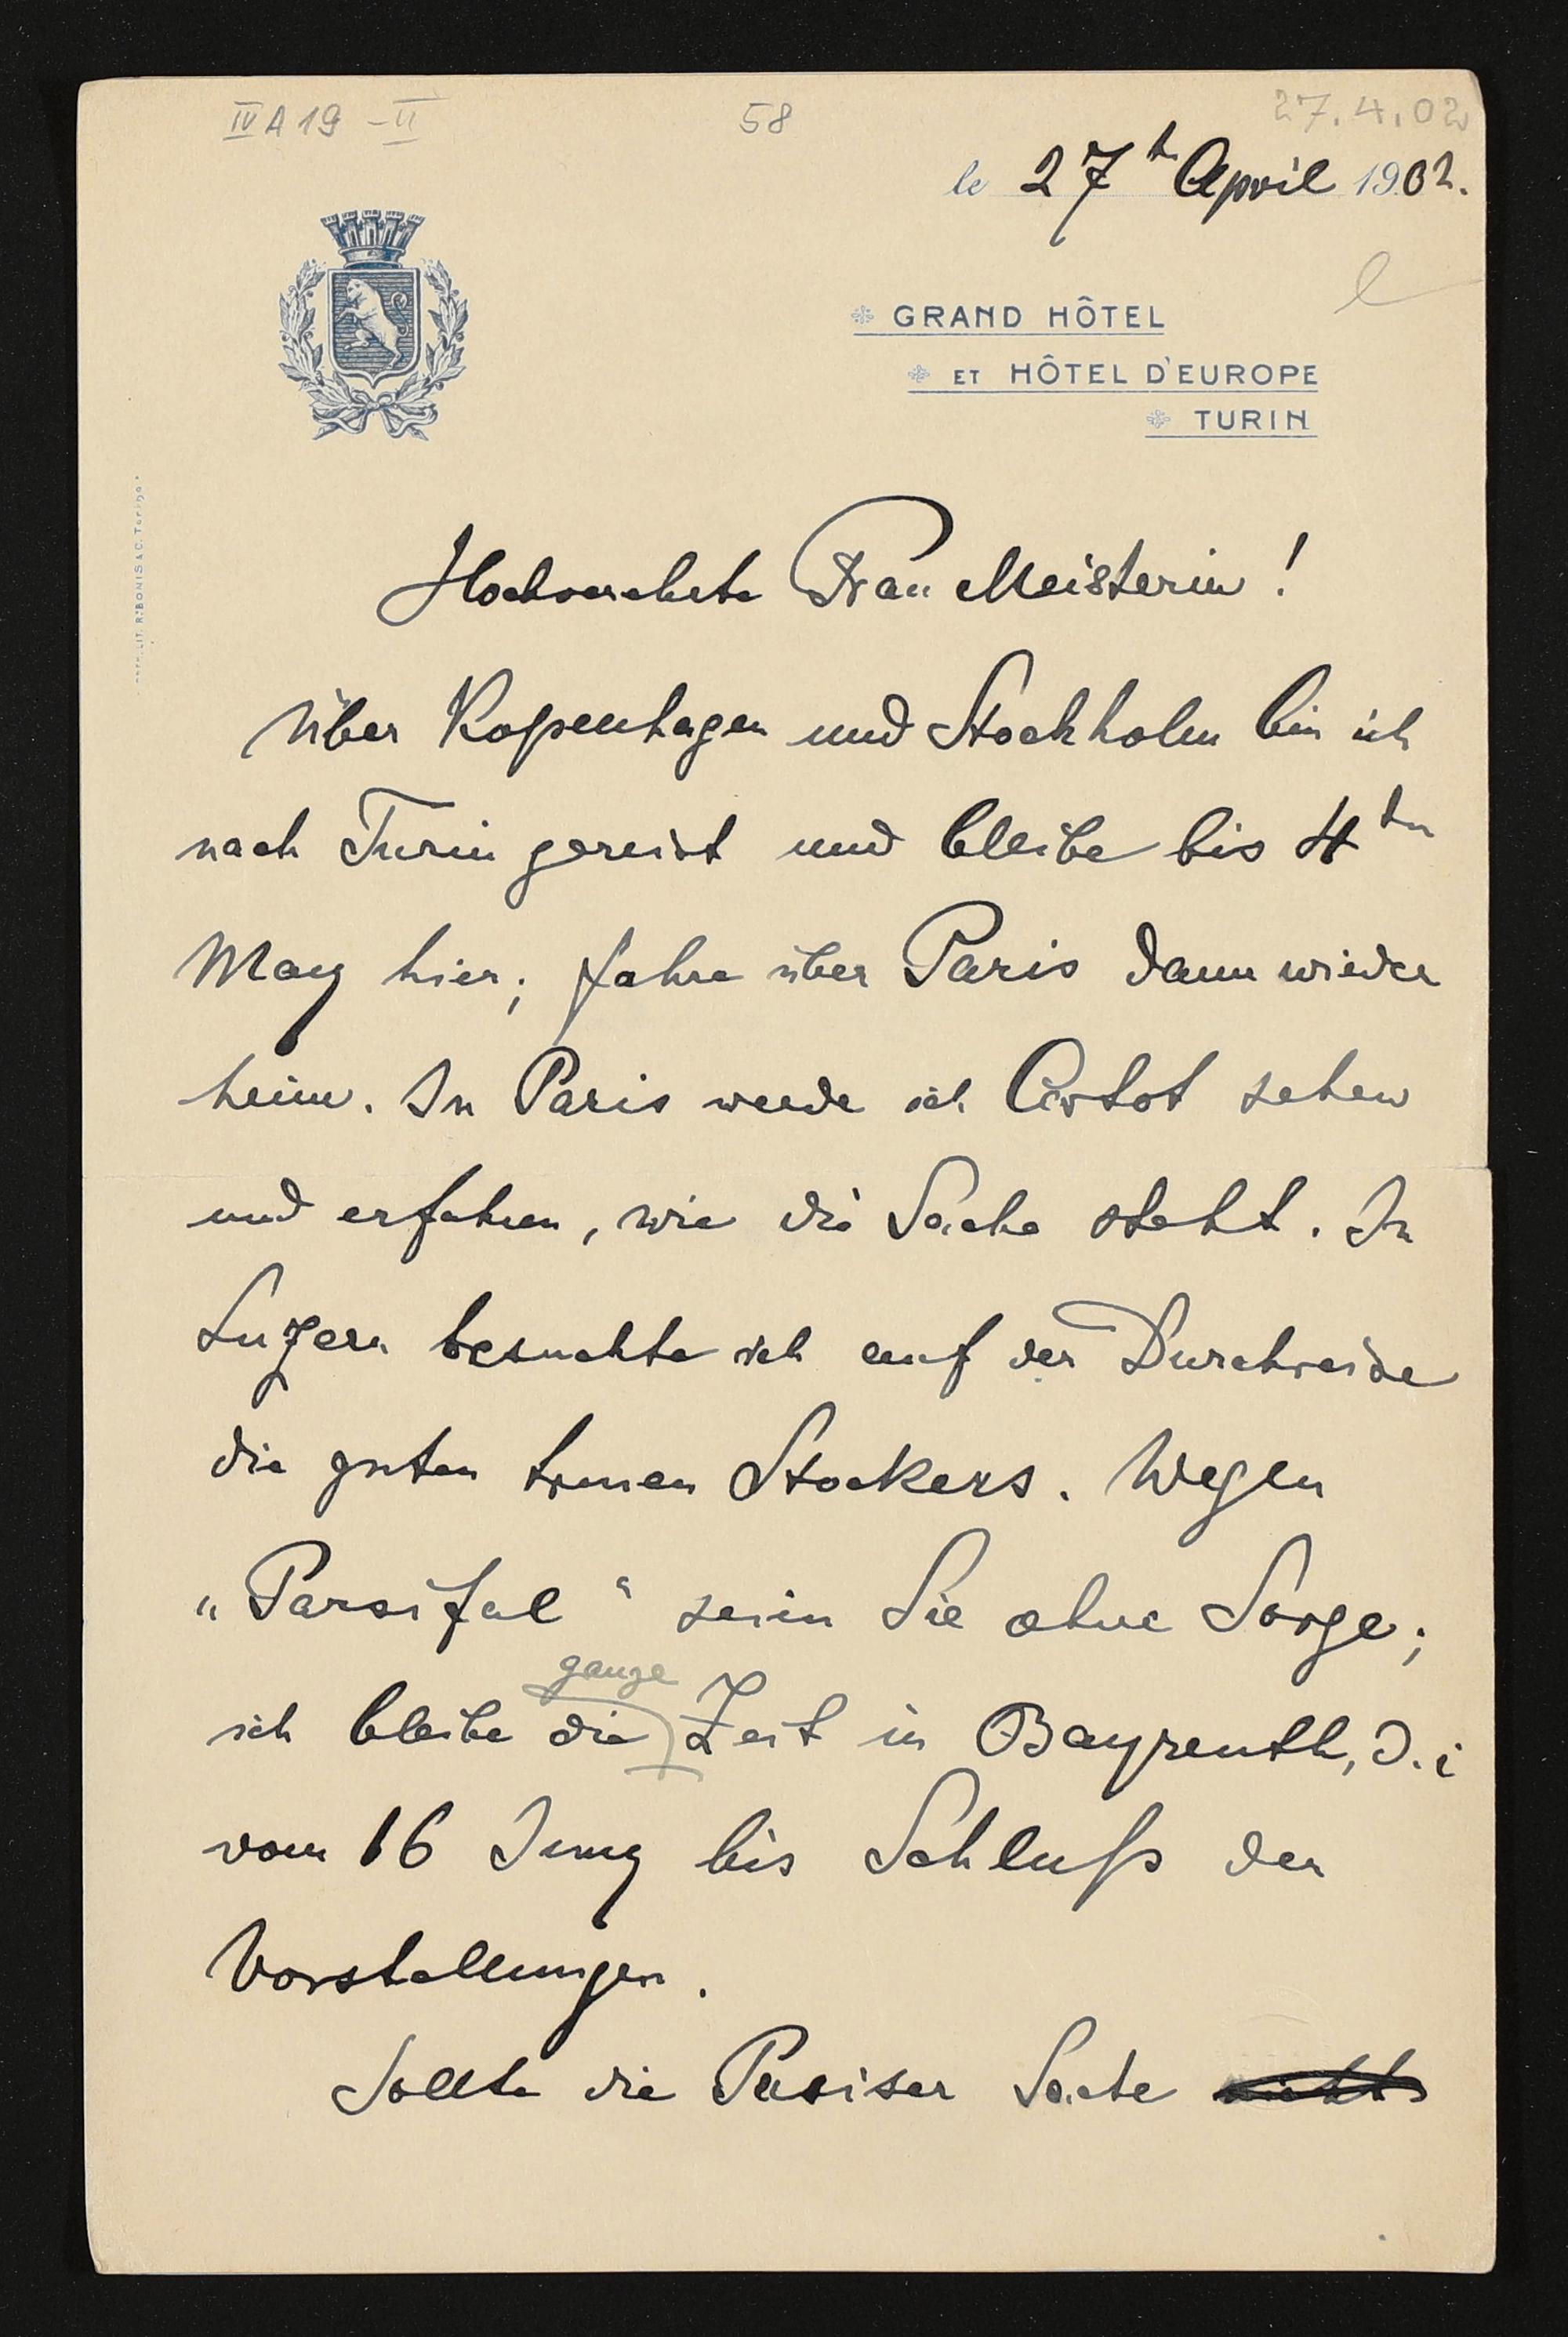 IV A 19 - II
58
27.4.02
le 27t April 1902.
GRAND HÔTEL
ET HÔTEL D'EUROPE
TURIN
Hochverehrte Frau Meisterin!
Über Kopenhagen und Stockholm bin ich
nach Turin gereist und bleibe bis 4ten
May hier; fahre über Paris dann wieder
heim. In Paris werde ich Cortot sehen
und erfahren, wie die Sache steht. In
Luzern besuchte ich auf der Durchreise
die guten treuen Stockers. Wegen
„Parsifal“ seien Sie ohne Sorge;
ich bleibe die ganze Zeit in Bayreuth, d. i
vom 16 Juny bis Schluß der
Vorstellungen.
Sollte die Pariser Sache